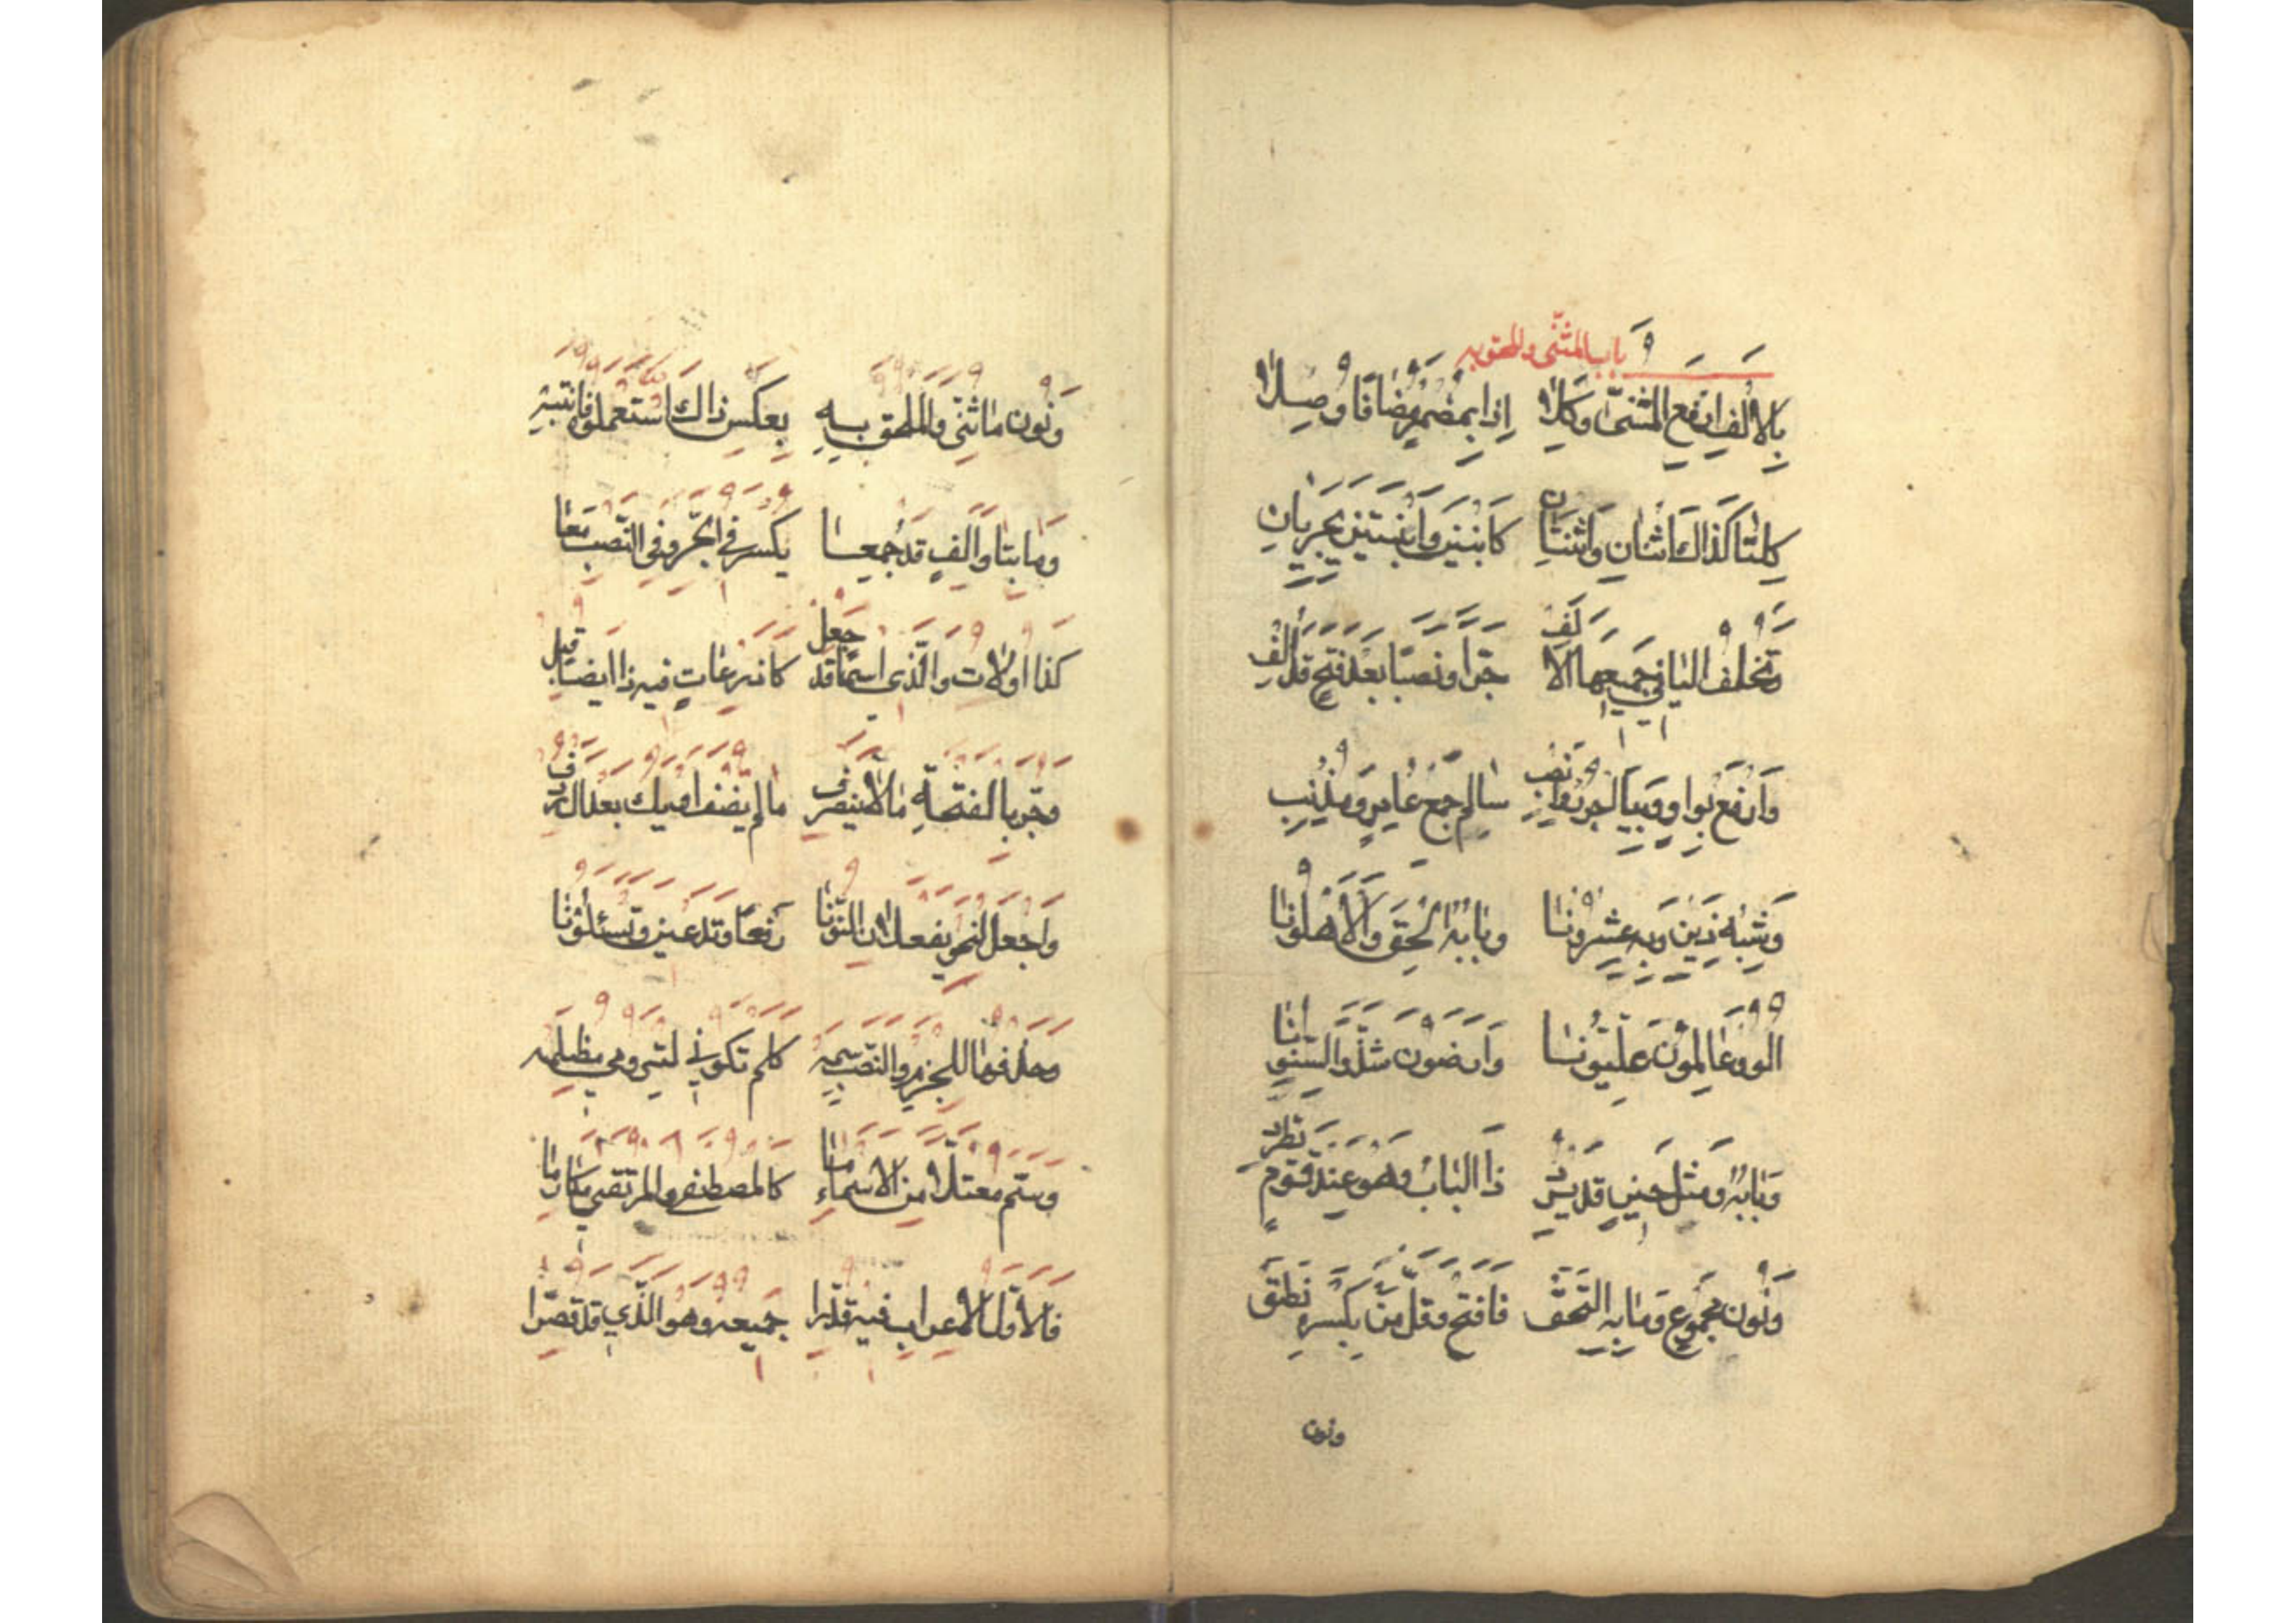 باب المثنى والملحق به
بِالأَلِفِ ارْفَعِ المُثَنَّى وَكِلَا إِذَا بِمُضْمَرٍ مُضَافًا وُصِلَا
كِلْتَا كَذَاكَ اثْنَانِ وَاثْنَتَانِ كَابْنَيْنِ وَابْنَتَيْنِ يَجْرِيَانِ
وَتَخْلُفُ اليَا فِي جَمِيعِهَا الأَلِفْ جَرًّا وَنَصْبًا بَعْدَ فَتْحٍ قَدْ أُلِفْ
وَارْفَعْ بِوَاوٍ وَبِيَا اجْرُرْ وَانْصِبِ سَالِمَ جَمْعِ عَامِرٍ وَمُذْنِبِ
وَشِبْهِ ذَيْنِ وَبِهِ عِشْرُونَا وَبَابُهُ أُلْحِقَ وَالأَهْلُونَا
أُولُو وَعَالَمُونَ عِلِّيُّونَا وَأَرَضُونَ شَذَّ وَالسِّنُونَا
وَبَابُهُ وَمِثْلَ حِينٍ قَدْ يَرِدْ ذَا البَابُ وَهْوَ عِنْدَ قَوْمٍ يَطَّرِدْ
وَنُونَ مَجْمُوعٍ وَمَا بِهِ الْتَحَقْ فَافْتَحْ وَقَلَّ مَنْ بِكَسْرِهِ نَطَقْ
ونون
وَنُونُ مَا ثُنِّيَ وَالمُلْحَقِ بِهِ بِعَكْسِ ذَاكَ اسْتَعْمَلُوهُ فَانْتَبِهْ
وَمَا بِتَا وَأَلِفٍ قَدْ جُمِعَا يُكْسَرُ فِي الجَرِّ وَفِي النَّصْبِ مَعَا
كَذَا أُولَاتُ وَالَّذِي اسْمًا قَدْ جُعِلْ كَأَذْرِعَاتٍ فِيهِ ذَا أَيْضًا قُبِلْ
وَجُرَّ بِالفَتْحَةِ مَا لَا يَنْصَرِفْ مَا لَمْ يُضَفْ أَوْ يَكُ بَعْدَ أَلْ رَدِفْ
وَاجْعَلْ لِنَحْوِ يَفْعَلَانِ النُّونَا رَفْعًا وَتَدْعِينَ وَتَسْئَلُونَا
وَحَذْفُهَا لِلْجَزْمِ وَالنَّصْبِ سِمَهْ كَلَمْ تَكُونِي لِتَرُومِي مَظْلَمَهْ
وَسَمِّ مُعْتَلًّا مِنَ الأَسْمَاءِ مَا كَالمُصْطَفَى وَالمُرْتَقِي مَكَارِمَا
فَالأَوَّلُ الإِعْرَابُ فِيهِ قُدِّرَا جَمِيعُهُ وَهْوَ الَّذِي قَدْ قُصِرَا